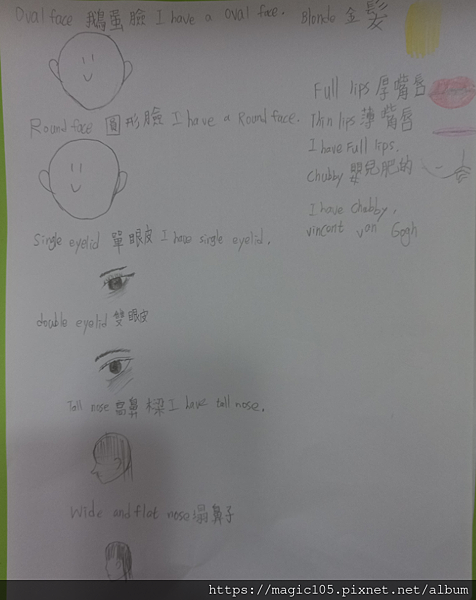 Oval face 鵝蛋臉 I have a oval face.
Blonde 金髮
Full lips 厚嘴唇
Round face 圓形臉 I have a Round face.
Thin lips 薄嘴唇
I have Full lips.
Chubby 嬰兒肥的
I have chubby.
vincent von Gogh
Single eyelid 單眼皮 I have single eyelid.
double eyelid 雙眼皮
Tall nose 高鼻樑 I have tall nose.
Wide and flat nose 塌鼻子
https://magic105.pixnet.net/album